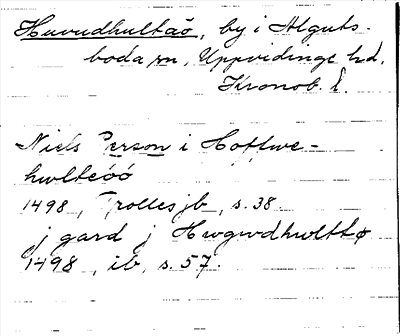 Huvudhultaö, by i Alguts-
boda sn, Uppvidinge hd,
Kronob. l.
Niels Person i Hoffwe-
hwlteöö
1498, Trolles jb, s. 38.
j gard j Hwgwdhwlttø
1498, ib, s. 57.